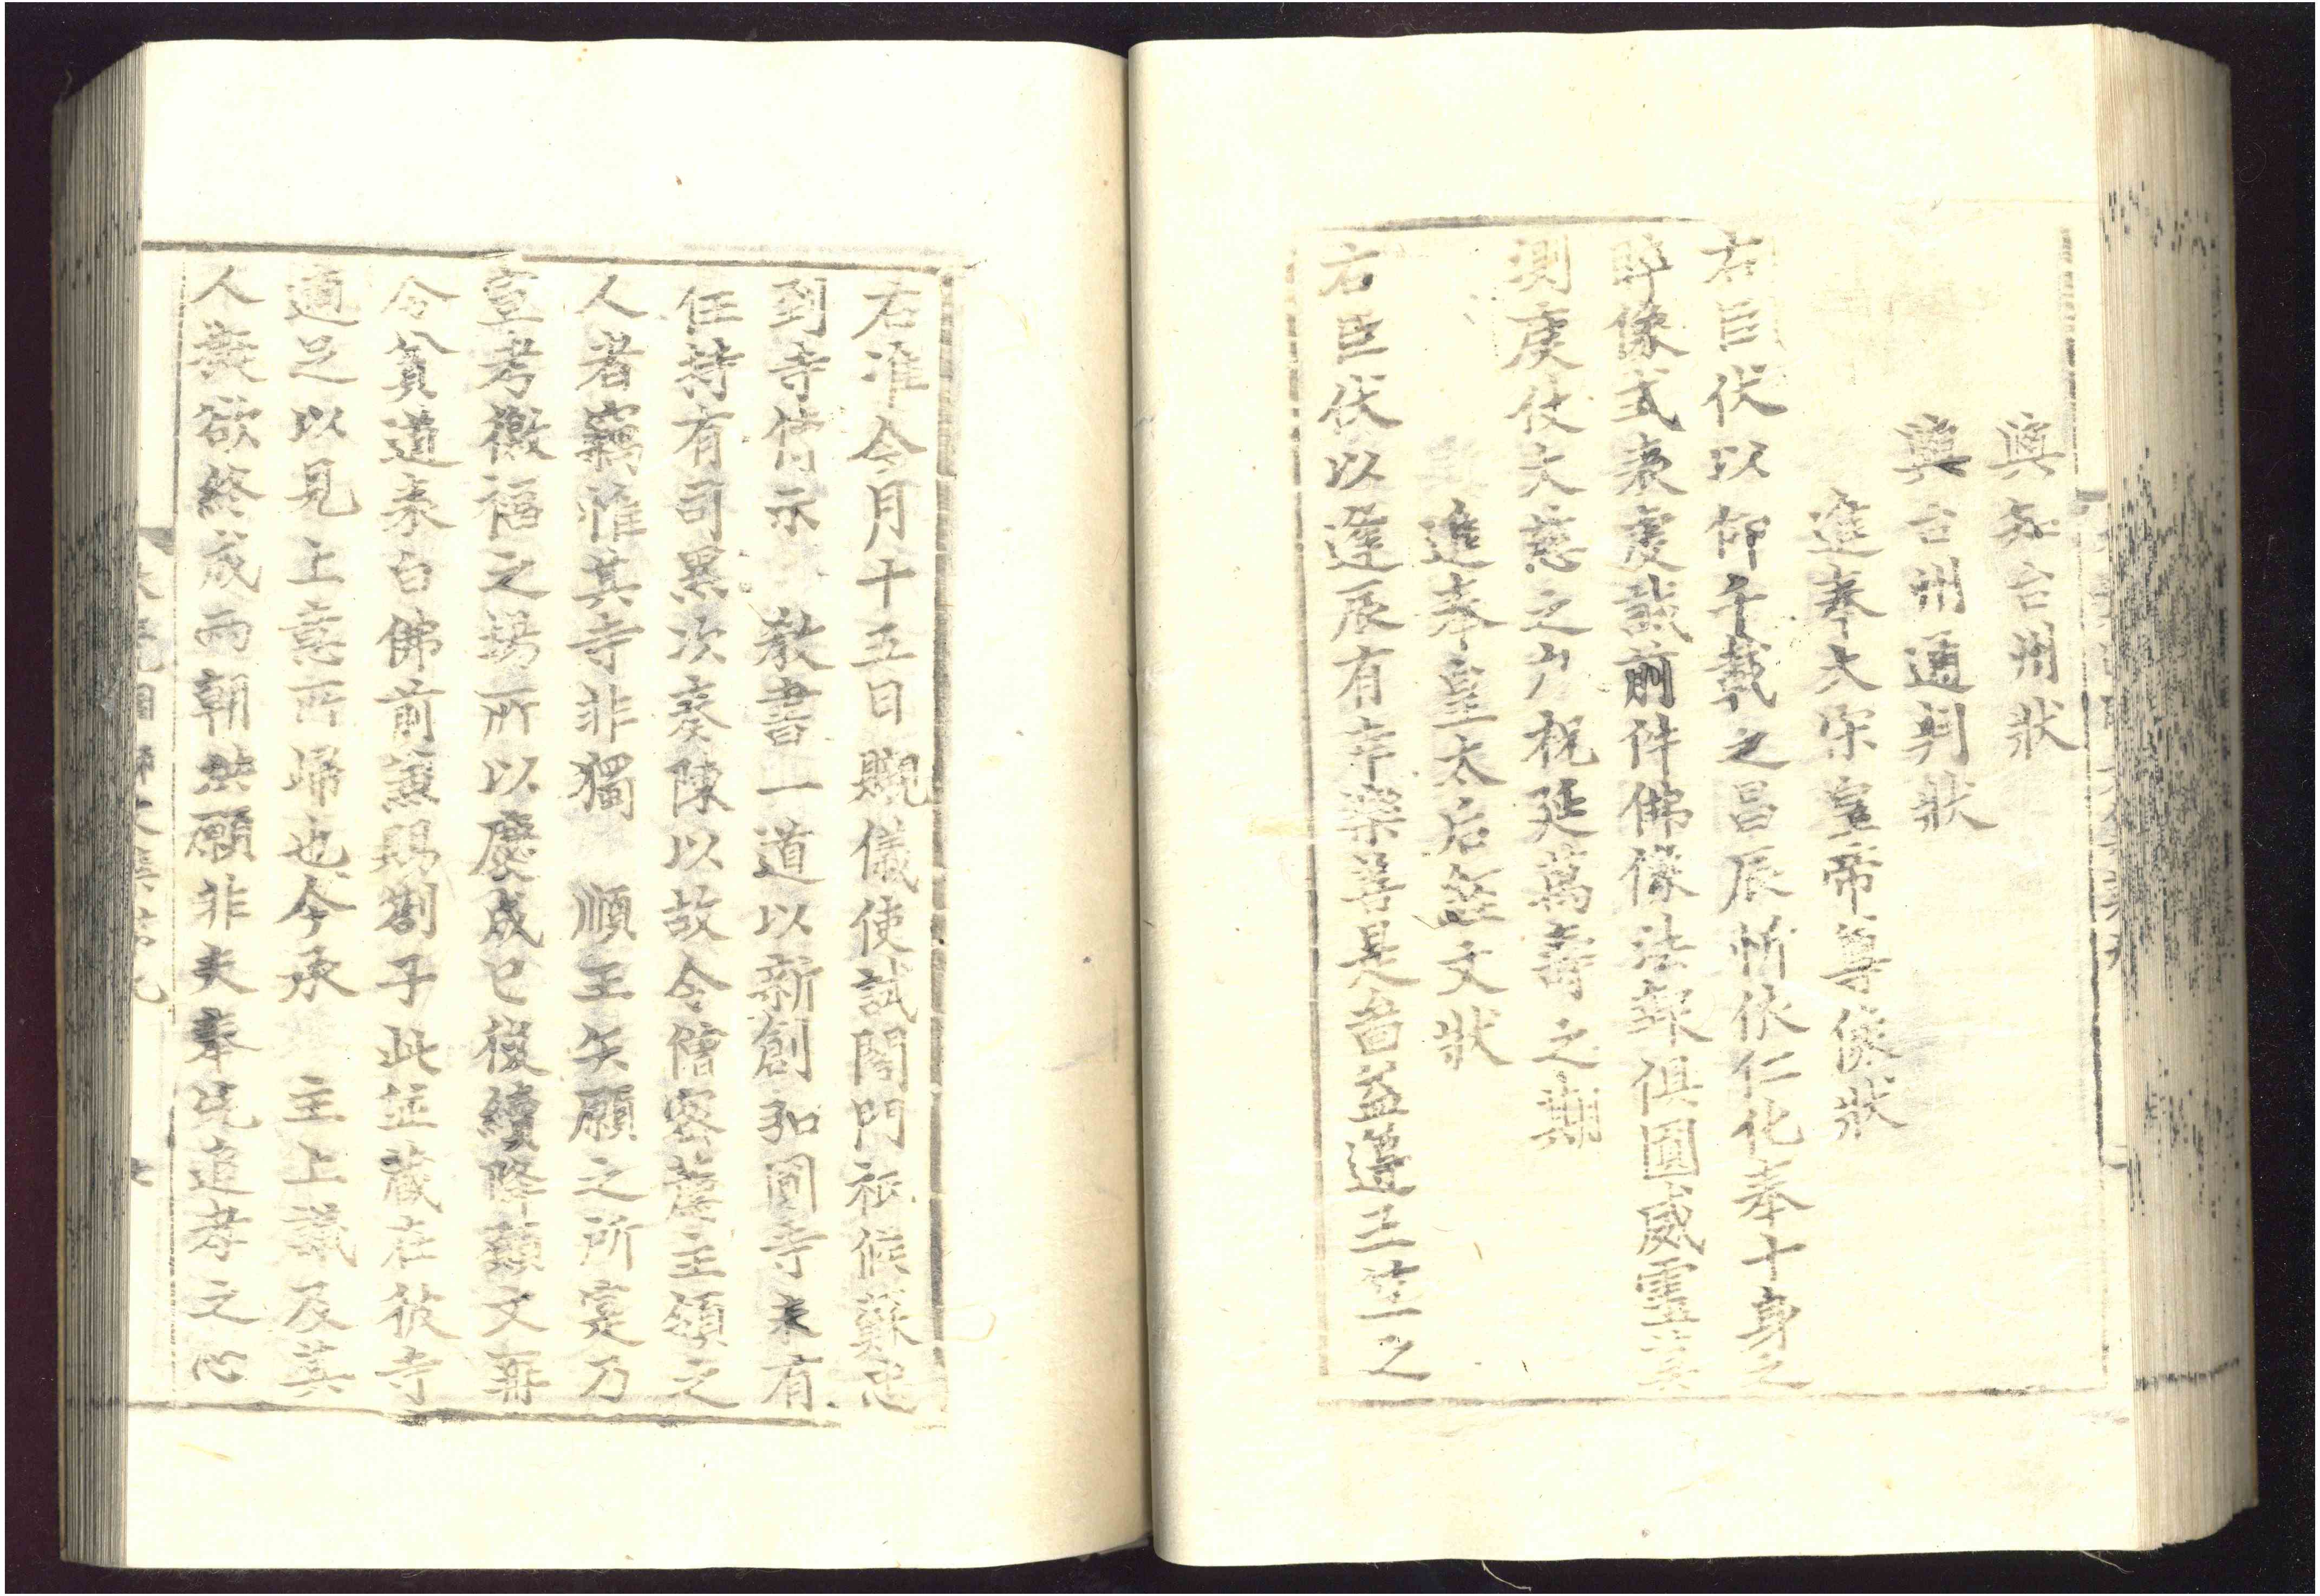 與知台州狀
與台州通判狀
進奉大宋皇帝尊像狀
右臣伏以仰千載之昌辰忻依仁化奉十身之
晬像式表虔誠前件佛像法舞俱圓威靈
測虔仗大慈之力祝延萬壽之期
進奉皇太后金文狀
右臣伏以逢辰有幸樂善是啚益遵三生之
右准今月十五日覩儀使試閤門祗候蘇忠
到寺傳示 敎書一道以新創弘圓寺未有
住持有司累次奏陳以故令僧密苾主領之
人者竊惟其寺非獨 順王矣願之所寔乃
宣考徼福之場所以廢成已復續降類文耕
令貧道表白佛前兼賜劄子此並藏在彼寺
適足以見上意所歸也今承 主上議及其
人擬欲終成兩朝洪願非夫奉先追孝之心